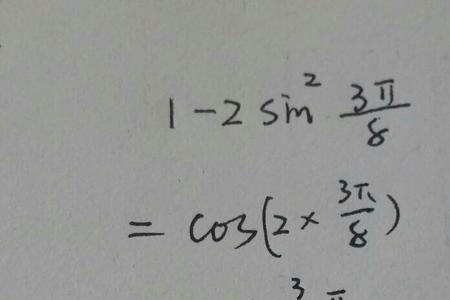 1-2 sin² 3π/8
= cos(2 × 3π/8)
3π